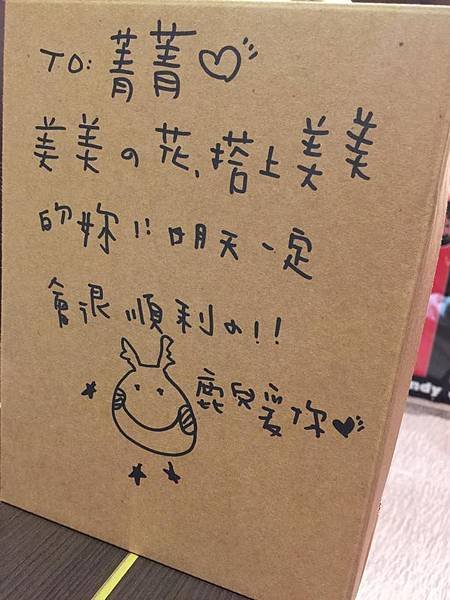 TO: 菁菁♡
美美の花、搭上美美
的妳!! 明天一定
會很順利的!!
鹿兒愛你♥
ndy